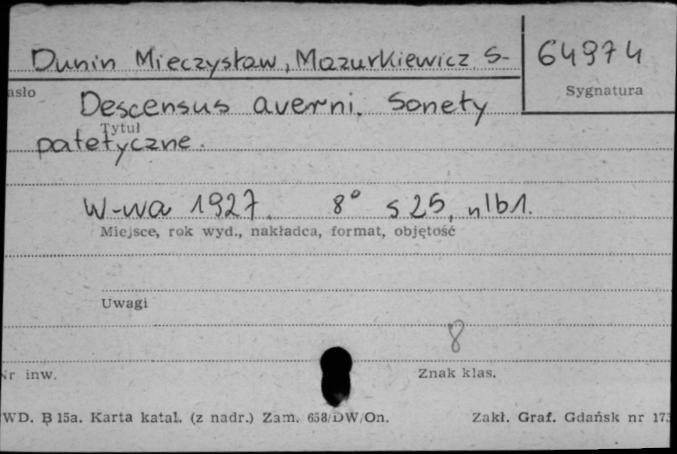 Dunin Mieczysław, Mazurkiewicz S-
64974
Sygnatura
asło
Descensus averni. Sonety
Tytuł
patetyczne.
W-wa 1927. 8° s 25, nlb1.
Miejsce, rok wyd., nakładca, format, objętość
Uwagi
8
Nr inw.
Znak klas.
WD. B 15a. Karta katal. (z nadr.) Zam. 658/DW/On.
Zakł. Graf. Gdańsk nr 173